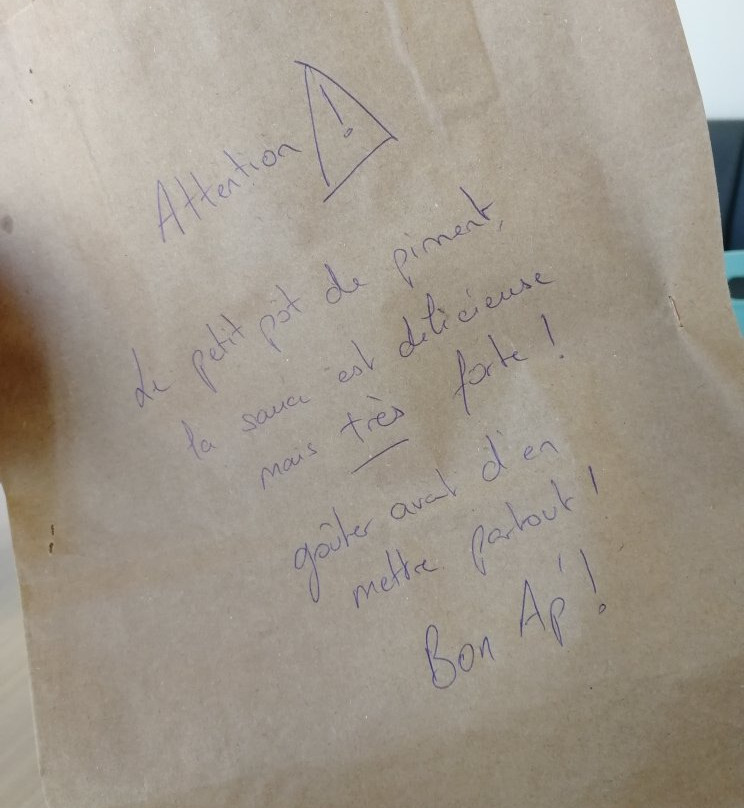 Attention !
Le petit pôt de piment,
la sauce est délicieuse
mais très forte !
goûter avant d'en
mettre partout !
Bon Ap' !